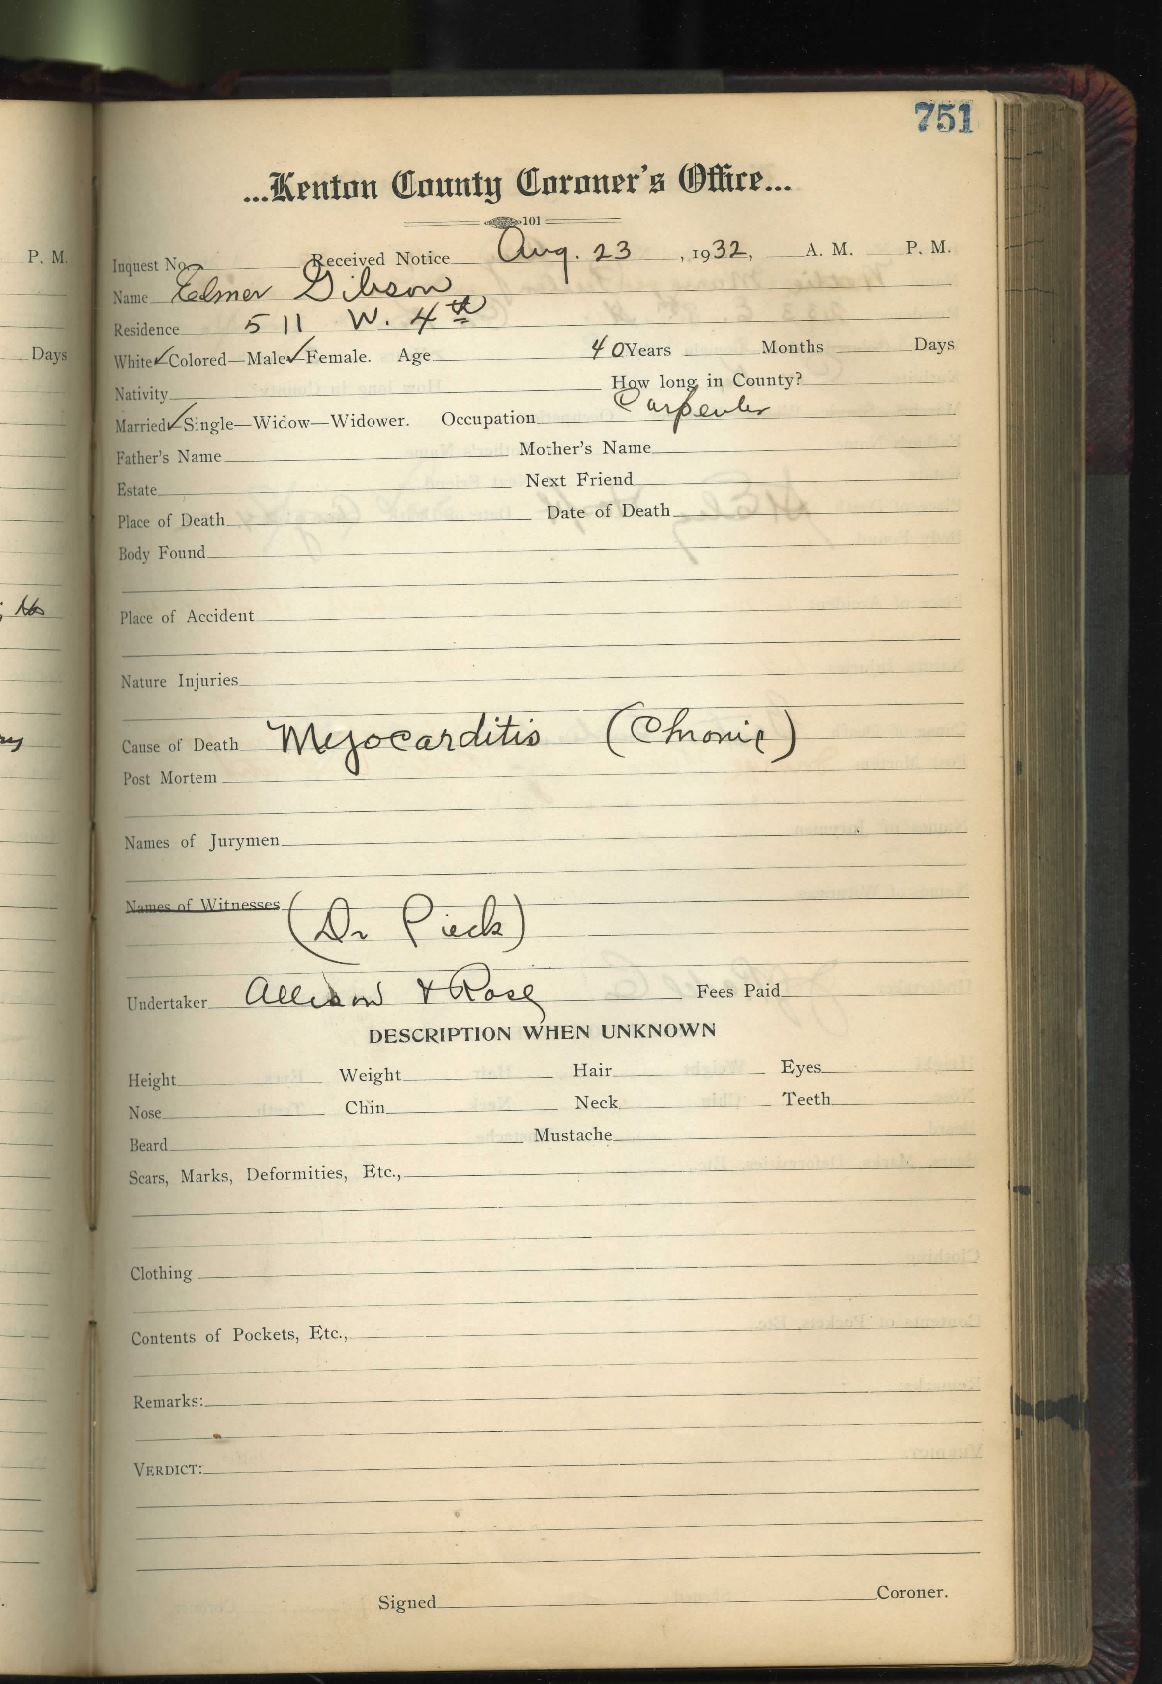 751
...Kenton County Coroner's Office...
101
Inquest No. Received Notice Aug. 23, 1932, A. M. P. M.
Name Elmer Gibson
Residence 511 W. 4th
White✓Colored—Male✓Female. Age 40 Years Months Days
Nativity How long in County?
Married✓Single—Widow—Widower. Occupation Carpenter
Father's Name Mother's Name
Estate Next Friend
Place of Death Date of Death
Body Found
Place of Accident
Nature Injuries
Cause of Death Myocarditis (Chronic)
Post Mortem
Names of Jurymen
Names of Witnesses (Dr Pieck)
Undertaker Allison & Rose Fees Paid
DESCRIPTION WHEN UNKNOWN
Height Weight Hair Eyes
Nose Chin Neck Teeth
Beard Mustache
Scars, Marks, Deformities, Etc.,
Clothing
Contents of Pockets, Etc.,
Remarks:
VERDICT:
Signed Coroner.
P. M.
Days